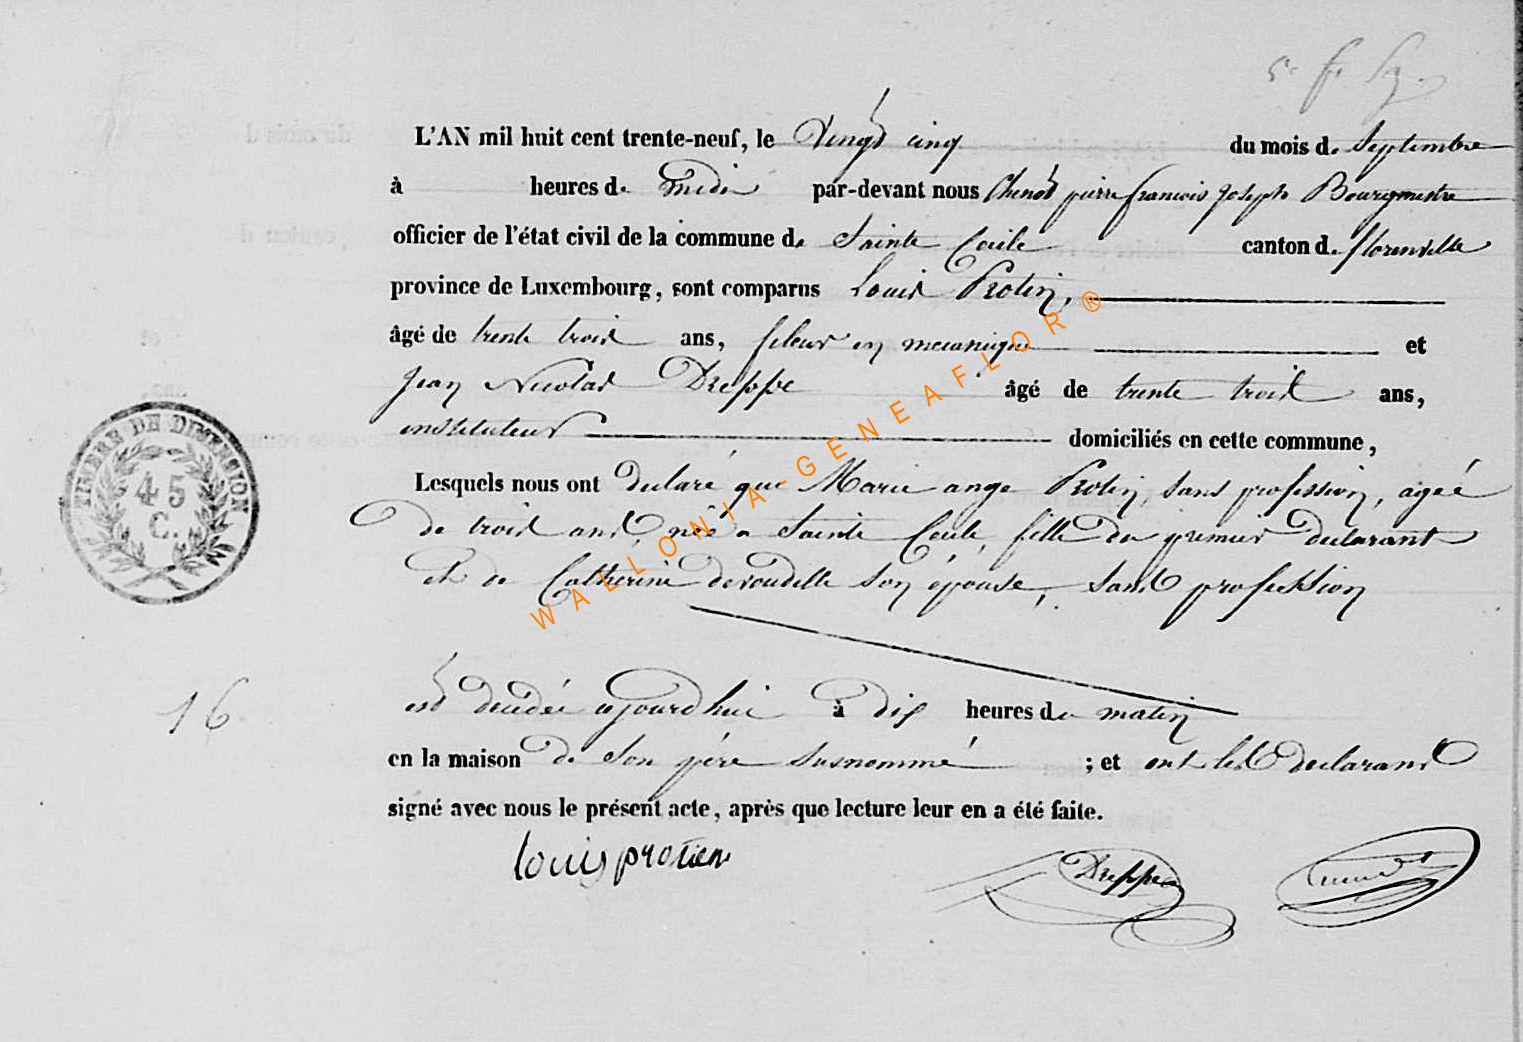 L'AN mil huit cent trente-neuf, le Vingt cinq du mois de Septembre
à heures de midi par-devant nous Chenot pierre francois Joseph Bourgmestre
officier de l'état civil de la commune de Sainte Cecile canton de florenville
province de Luxembourg, sont comparus Louis Protin,
âgé de trente trois ans, fileur en mecanique et
Jean Nicolas Dreppe âgé de trente trois ans,
instituteur domiciliés en cette commune,
Lesquels nous ont declaré que Marie ange Protin, sans profession, agéé
de trois ans, néé a Sainte Cecile, fille du premier declarant
et de Catherine devoudelle son épouse, sans profession
16
est decédée ajourdhui à dix heures du matin
en la maison de son pére susnommé ; et ont les declarans
signé avec nous le présent acte, après que lecture leur en a été faite.
louis protien Dreppe
TIMBRE DE DIMENSION
45
C.
WALLONIA-GENEAFLOR®